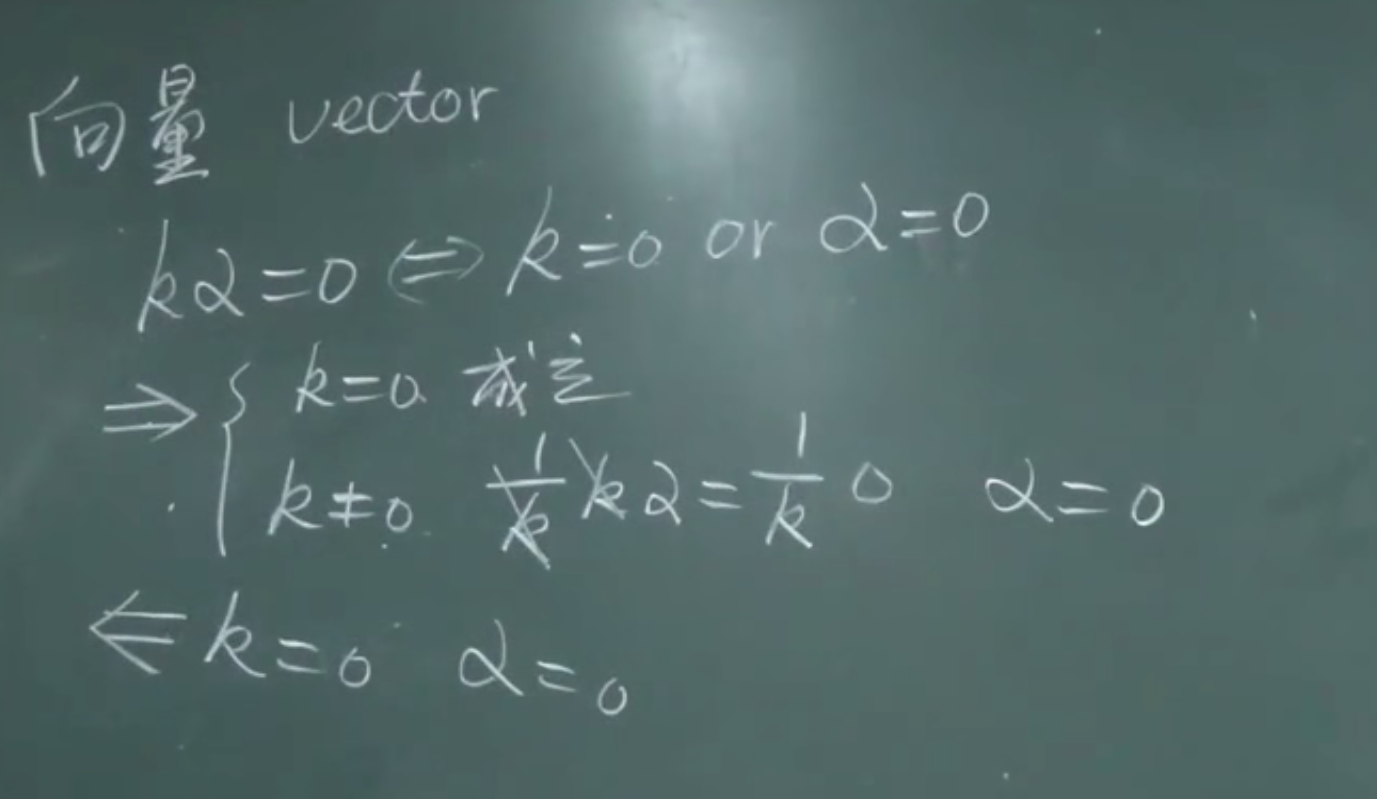 向量 vector
kα=0 ⇔ k=0 or α=0
⇒ { k=0 成立
k≠0 1/k kα = 1/k 0 α=0
⇐ k=0 α=0